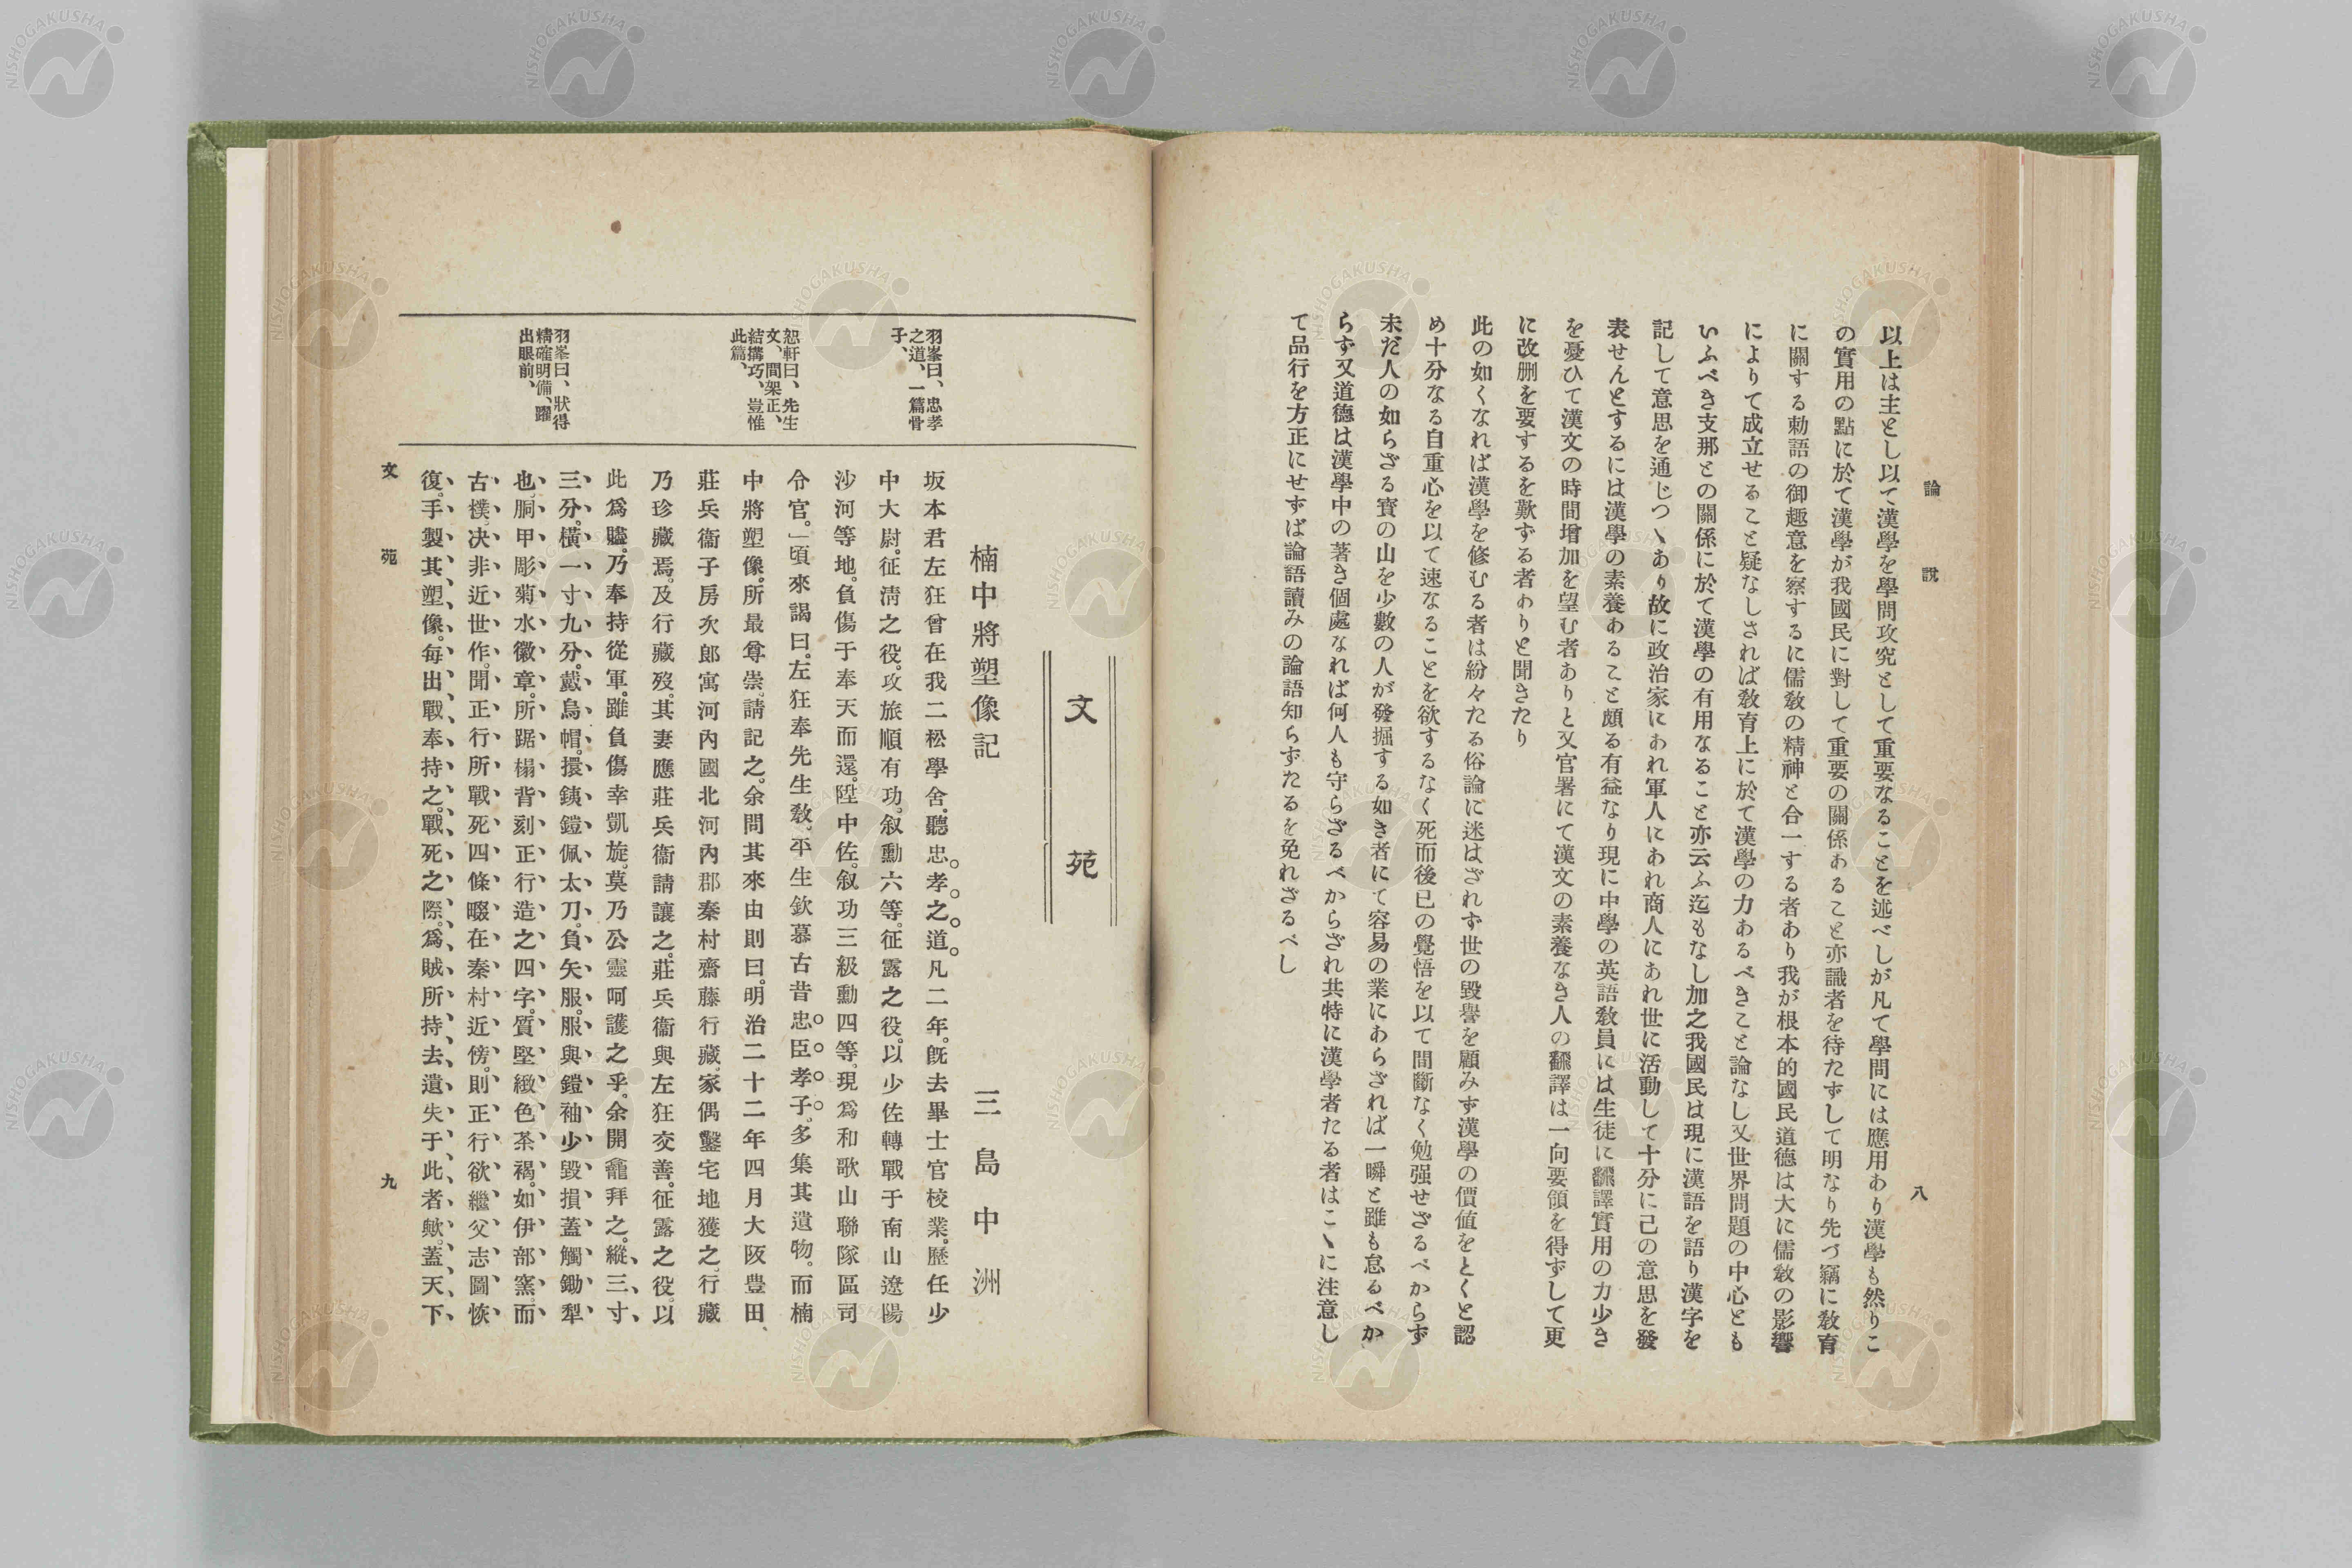 論說
八
以上は主とし以て漢學を學問攻究として重要なることを述べしが凡て學問には應用あり漢學も然りこ
の實用の點に於て漢學が我國民に對して重要の關係あること亦識者を待たずして明なり先づ竊に敎育
に關する勅語の御趣意を察するに儒敎の精神と合一する者あり我が根本的國民道德は大に儒敎の影響
によりて成立せること疑なしされば敎育上に於て漢學の力あるべきこと論なし又世界問題の中心とも
いふべき支那との關係に於て漢學の有用なること亦云ふ迄もなし加之我國民は現に漢語を語り漢字を
記して意思を通じつゝあり故に政治家にあれ軍人にあれ商人にあれ世に活動して十分に己の意思を發
表せんとするには漢學の素養あること頗る有益なり現に中學の英語敎員には生徒に飜譯實用の力少き
を憂ひて漢文の時間增加を望む者ありと又官署にて漢文の素養なき人の飜譯は一向要領を得ずして更
に改刪を要するを歎ずる者ありと聞きたり
此の如くなれば漢學を修むる者は紛々たる俗論に迷はざれず世の毀譽を顧みず漢學の價値をとくと認
め十分なる自重心を以て速なることを欲するなく死而後已の覺悟を以て間斷なく勉强せざるべからず
未だ人の知らざる寶の山を少數の人が發掘する如き者にて容易の業にあらざれば一瞬と雖も怠るべか
らず又道德は漢學中の著き個處なれば何人も守らざるべからざれ共特に漢學者たる者はこゝに注意し
て品行を方正にせずば論語讀みの論語知らずたるを免れざるべし
文苑
楠中將塑像記
三島中洲
羽峯曰、忠孝
之道、一篇骨
子、
坂本君左狂曾在我二松學舍。聽忠孝之道。凡二年。旣去畢士官校業。歷任少
中大尉。征淸之役。攻旅順有功。叙勳六等。征露之役。以少佐轉戰于南山遼陽
沙河等地。負傷于奉天而還。陞中佐。叙功三級勳四等。現爲和歌山聯隊區司
令官。」頃來謁曰。左狂奉先生敎。平生欽慕古昔忠臣孝子。多集其遺物。而楠
恕軒曰、先生
文、間架正、
結搆巧、豈惟
此篇、
中將塑像。所最尊崇。請記之。余問其來由則曰。明治二十二年四月大阪豊田
莊兵衞子房次郞寓河內國北河內郡秦村齋藤行藏。家偶鑿宅地獲之。行藏
乃珍藏焉。及行藏歿。其妻應莊兵衞請讓之。莊兵衞與左狂交善。征露之役。以
此爲贐。乃奉持從軍。雖負傷幸凱旋。莫乃公靈呵護之乎。余開龕拜之。縱三寸
羽峯曰、狀得
精確明備、躍
出眼前、
三分。橫一寸九分。戴烏帽。擐銕鎧佩太刀。負矢服。服與鎧袖少毀損蓋觸鋤犁
也。胴甲彫菊水徽章。所踞榻背刻正行造之四字。質堅緻色茶褐。如伊部窯。而
古樸。决非近世作。聞正行所戰死四條畷在秦村近傍。則正行欲繼父志圖恢
復。手製其塑像。每出戰奉持之。戰死之際。爲賊所持去遺失于此者歟。蓋天下
文苑
九
NISHOGAKUSHA